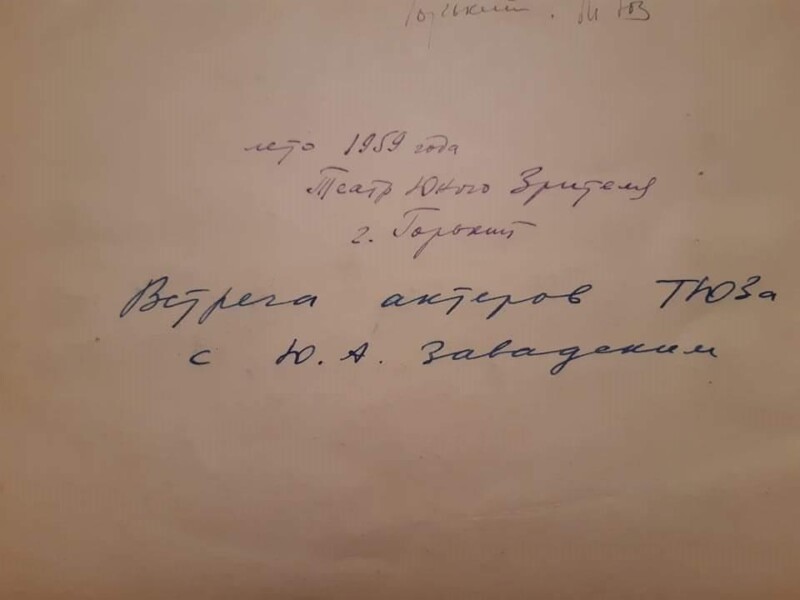 Горький. ТЮЗ
лето 1959 года
Театр Юного Зрителя
г. Горький
Встреча актеров ТЮЗа
с Ю. А. Завадским